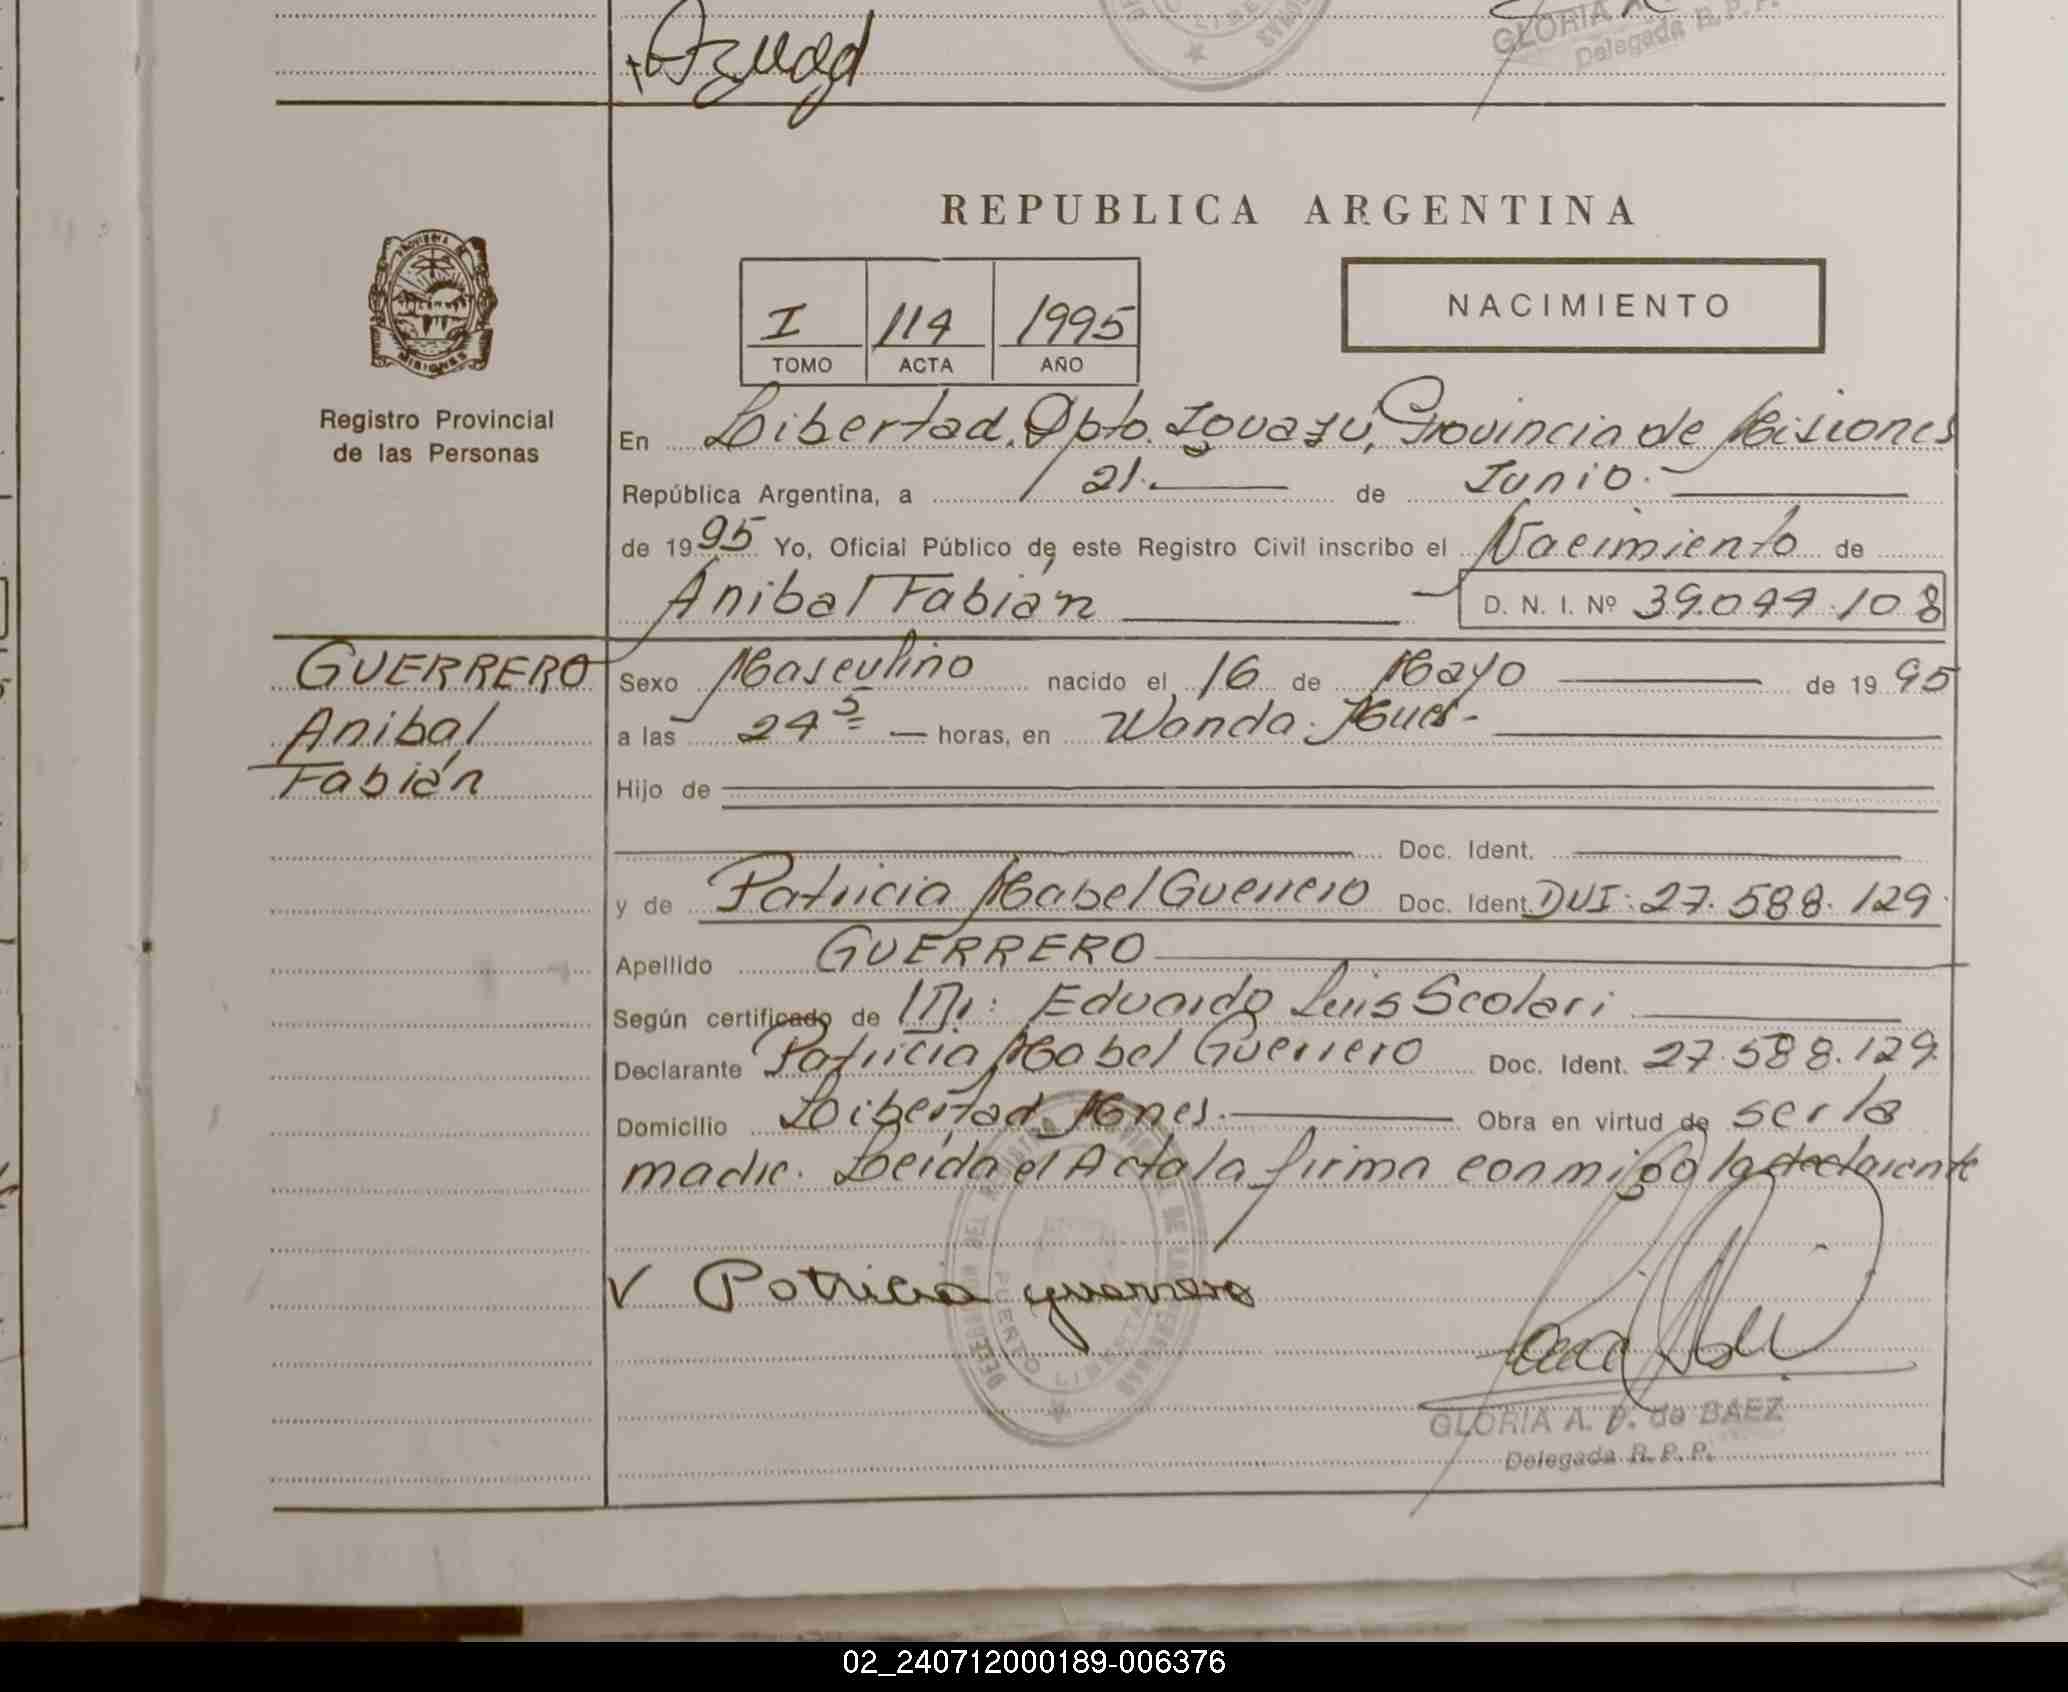 Azuad
GLORIA A.
Delegada R. P. P.
REPUBLICA ARGENTINA
I 114 1995
TOMO ACTA AÑO
NACIMIENTO
PROVINCIA DE
MISIONES
Registro Provincial
de las Personas
En Libertad, Dpto. Iguazú, Provincia de Misiones
República Argentina, a 21. de Junio.
de 1995 Yo, Oficial Público de este Registro Civil inscribo el Nacimiento de
Anibal Fabián D. N. I. Nº 39.044.108
GUERRERO
Anibal
Fabián
Sexo Masculino nacido el 16 de Mayo de 1995
a las 24 5 horas, en Wanda. Mnes-
Hijo de
Doc. Ident.
y de Patricia Mabel Guerrero Doc. Ident. DNI: 27.588.129.
Apellido GUERRERO
Según certificado de Eduardo Luis Scolari
Declarante Patricia Mabel Guerrero Doc. Ident. 27.588.129.
Domicilio Libertad Mnes. Obra en virtud de ser la
madre. Leida el Acta la firma conmigo la declarante
V Patricia guerrero
PUERTO LIBERTAD
GLORIA A. D. de BAEZ
Delegada R. P. P.
02_240712000189-006376